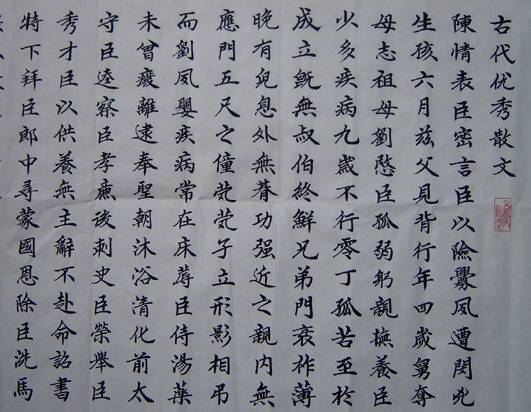 古代优秀散文
陳情表臣密言臣以險釁夙遭閔兇
生孩六月兹父見背行年四歲舅奪
母志祖母劉愍臣孤弱躬親撫養臣
少多疾病九歲不行零丁孤苦至於
成立既無叔伯終鮮兄弟門衰祚薄
晚有兒息外無朞功强近之親内無
應門五尺之僮茕茕孑立形影相吊
而劉夙嬰疾病常在床蓐臣侍湯藥
未曾廢離逮奉聖朝沐浴清化前太
守臣逵察臣孝廉後刺史臣榮舉臣
秀才臣以供養無主辭不赴命詔書
特下拜臣郎中尋蒙國恩除臣洗馬